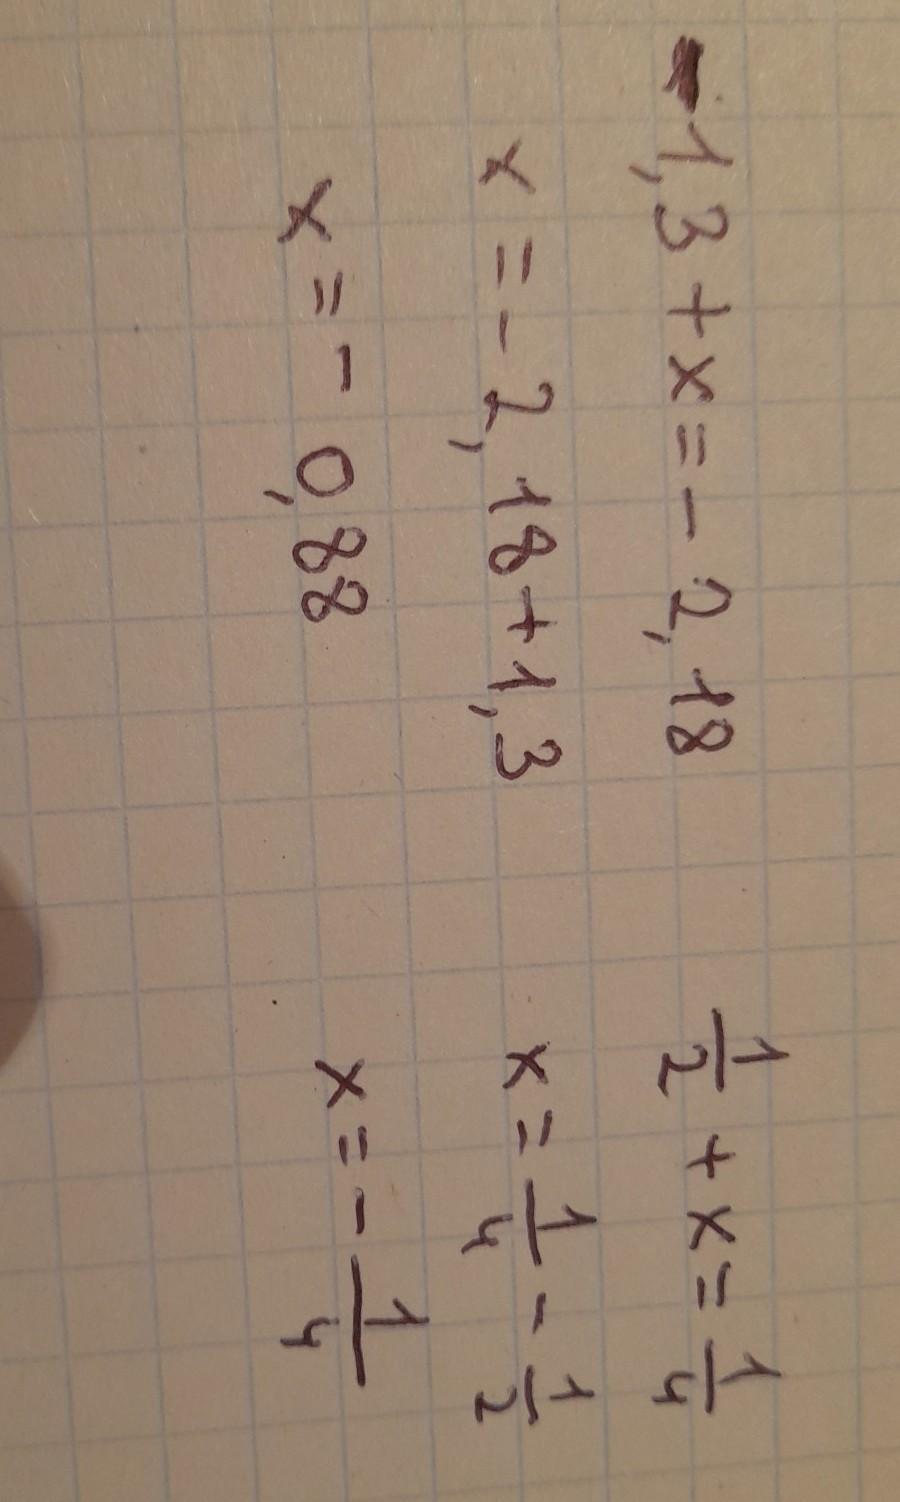 -1,3 + x = - 2,18
x = - 2,18 + 1,3
x = - 0,88
1/2 + x = 1/4
x = 1/4 - 1/2
x = - 1/4